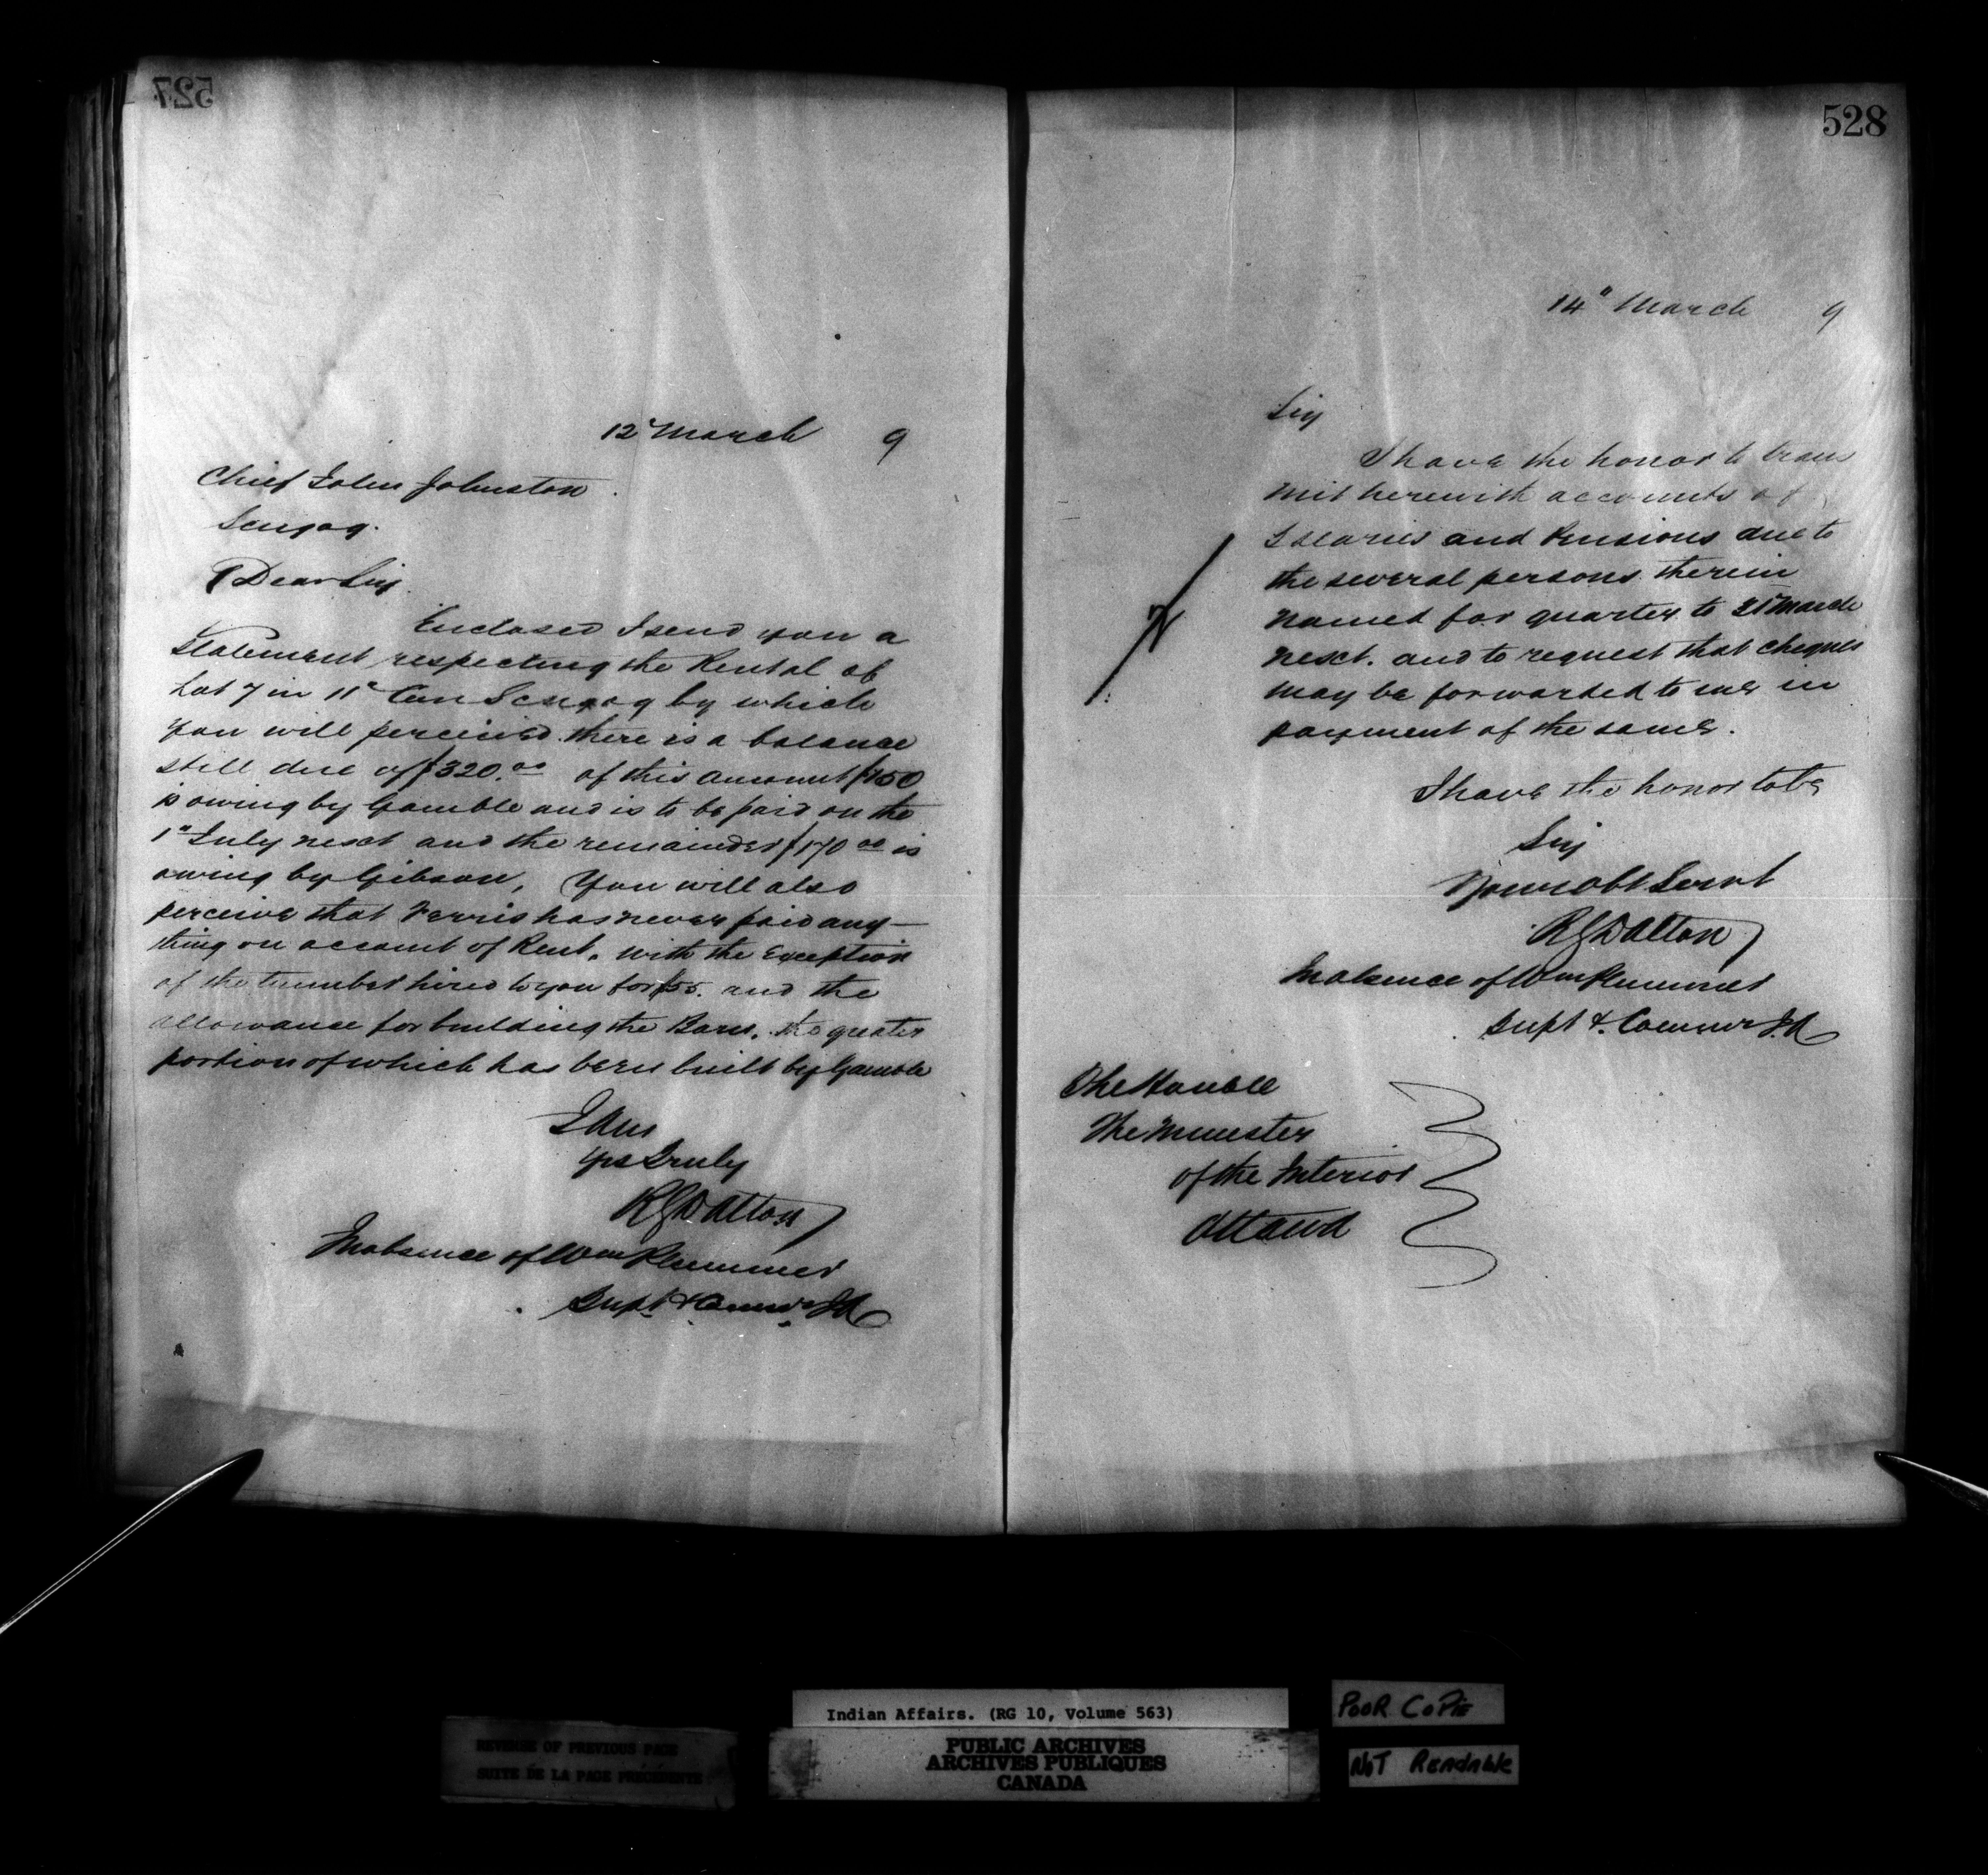 527
12" March 9
Chief John Johnston
Scugog.
Dear Sir,
Enclosed I send you a
Statement respecting the Rental of
Lot 7 in 11" Con Scugog by which
you will perceived there is a balance
still due of $320.00 of this amount $150
is owing by Gamble and is to be paid on the
1" July next and the remainder $170 00 is
owing by Gibson. You will also
perceive that Ferris has never paid any-
thing on account of Rent. with the Exception
of the hired to you for $55. and the
allowance for building the Barn. the greater
portion of which has been built by Gamble
I am
Yrs Truly
R G Dalton
In absence of Wm Plummer
Supt & Commr I A
528
14" March 9
Sir
I have the honor to trans
mit herewith accounts of
Salaries and Pensions due to
the several persons therein
named for quarter to 31" March
next. and to request that cheques
may be forwarded to me in
payment of the same.
I have the honor to be
Sir
Your Obt Servt
R G Dalton
In absence of Wm Plummer
Supt & Commr I A
The Honble
The Minister
of the Interior
Ottawa
Indian Affairs. (RG 10, Volume 563)
PUBLIC ARCHIVES
ARCHIVES PUBLIQUES
CANADA
REVERSE OF PREVIOUS PAGE
SUITE DE LA PAGE PRÉCÉDENTE
POOR COPIE
NOT READABLE